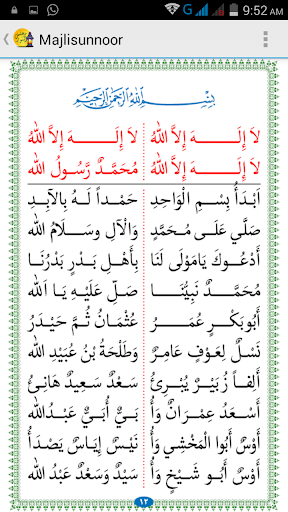 9:52 AM
Majlisunnoor
بِسْمِ اللهِ الرَّحْمٰنِ الرَّحِيْمِ
لَا إِلَـــهَ إِلَّا اللهُ لَا إِلَـــهَ إِلَّا اللهُ
لَا إِلَـــهَ إِلَّا اللهُ مُحَمَّدٌ رَّسُولُ اللهِ
اَبْدَأُ بِسْمِ الْوَاحِدِ حَمْدًا لَهُ بِالْآبِدِ
صَلِّي عَلَى مُحَمَّدٍ وَالْآلِ وَسَلَامُ الله
أَدْعُوكَ يَامَوْلَى لَنَا بِأَهْلِ بَدْرٍ بَدْرُنَا
مُحَمَّدٌ نَبِيُّنَا صَلِّ عَلَيْهِ يَا اَلله
أَبُوبَكْرٍ عُمَـــرُ عُثْمَانُ ثُمَّ حَيْدَرُ
نَسْلٌ لِعَوْفٍ عَامِرٌ وَطَلْحَةُ بْنُ عُبَيْدِ الله
أَلِفاً زُبَيْرٌ يُبْرِئُ سَعْدٌ سَعِيدٌ هَانِئُ
أَسْعَدُ عِمْرَانَ وَأُ بَيٌّ أُبَيٌّ عَبْدُالله
أَوْسٌ أَبُوا الْمَخْشِي وَأُ نَيْسٌ إِيَاسٌ يَصْدَأُ
أَوْسٌ أَبُو شَيْخٍ وَأُ سَيْدٌ وَسَعْدٌ عَبْدُ الله
١٢